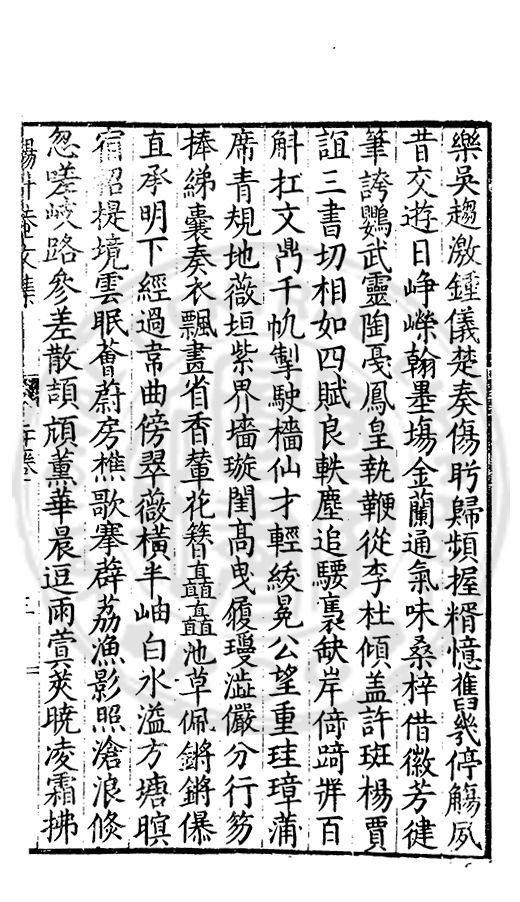 樂吳趨激鍾儀楚奏傷眄歸頻握糈憶舊幾停觴夙
昔交遊日崢嶸翰墨場金蘭通氣味桑梓借徽芳健
筆誇鸚武靈陶戞鳳皇執鞭從李杜傾盖許班楊賈
誼三書切相如四賦良軼塵追騕褭缺岸倚踦牂百
斛扛文鼎千帆掣駛檣仙才輕綾冕公望重珪璋蒲
席青規地薇垣紫界墻璇閨高曳履瓊澁儼分行笏
捧綈囊奏衣飄畫省香輦花簪矗矗池草佩鏘鏘㬥
直承明下經過韋曲傍翠薇橫半岫白水溢方塘瞑
宿招提境雲眠薈蔚房樵歌搴薜荔漁影照滄浪倏
忽嗟岐路參差散頡頏薰華晨逗雨蓂莢曉凌霜拂
楊升菴文集